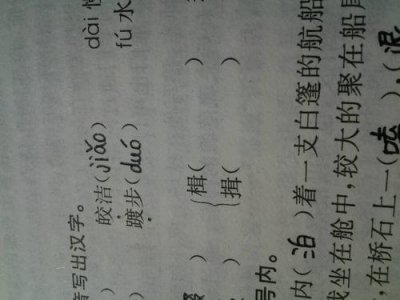 音写出汉字。
) 皎洁(jiǎo) dài
) 踱步(duó) fú 水
) 楫( )
) 揖( )
号内。
内(泊)着一支白篷的航船
我坐在舱中,较大的聚在船尾
,在桥石上一(嗑),(退